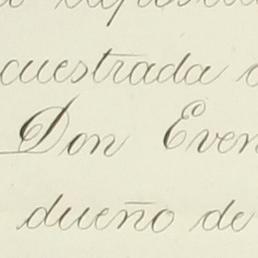 cuestrada
Don Even
dueño de